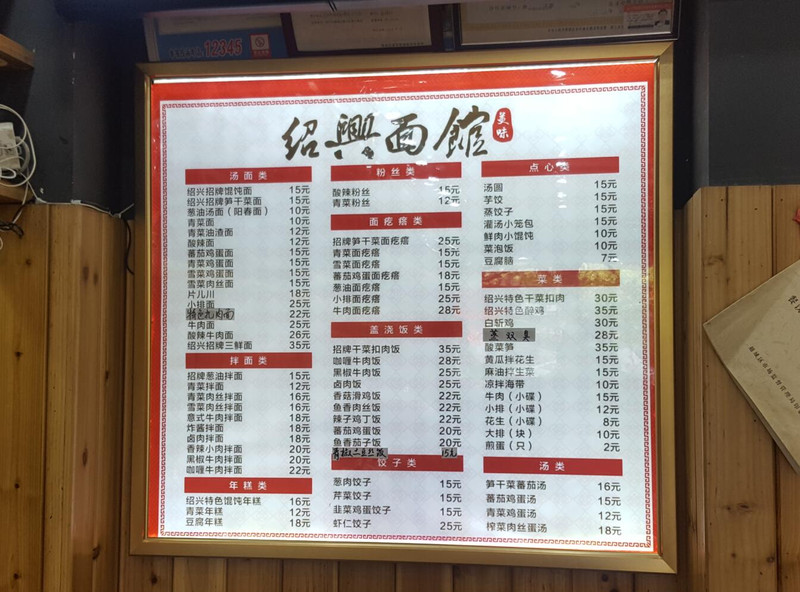 12345
紹興面館
美味
汤面类
绍兴招牌馄饨面 15元
绍兴招牌笋干菜面 15元
葱油汤面（阳春面） 10元
青菜面 10元
青菜油渣面 12元
酸辣面 12元
蕃茄鸡蛋面 15元
青菜鸡蛋面 15元
雪菜鸡蛋面 15元
雪菜肉丝面 15元
片儿川 18元
小排面 25元
特色九肉面 22元
牛肉面 25元
酸辣牛肉面 26元
绍兴招牌三鲜面 35元
拌面类
招牌葱油拌面 15元
青菜拌面 12元
青菜肉丝拌面 16元
雪菜肉丝拌面 16元
意式牛肉拌面 18元
炸酱拌面 18元
卤肉拌面 18元
香辣小肉拌面 20元
黑椒牛肉拌面 20元
咖喱牛肉拌面 22元
年糕类
绍兴特色馄饨年糕 16元
青菜年糕 12元
豆腐年糕 18元
粉丝类
酸辣粉丝 15元
青菜粉丝 12元
面疙瘩类
招牌笋干菜面疙瘩 25元
青菜面疙瘩 15元
雪菜面疙瘩 15元
蕃茄鸡蛋面疙瘩 18元
葱油面疙瘩 15元
小排面疙瘩 25元
牛肉面疙瘩 28元
盖浇饭类
招牌干菜扣肉饭 35元
咖喱牛肉饭 28元
黑椒牛肉饭 25元
卤肉饭 25元
香菇滑鸡饭 22元
鱼香肉丝饭 22元
辣子鸡丁饭 22元
蕃茄鸡蛋饭 20元
鱼香茄子饭 20元
青椒土豆丝饭 15元
饺子类
葱肉饺子 15元
芹菜饺子 15元
韭菜鸡蛋饺子 15元
虾仁饺子 25元
点心类
汤圆 15元
芋饺 15元
蒸饺子 15元
灌汤小笼包 15元
鲜肉小馄饨 10元
菜泡饭 10元
豆腐脑 7元
菜类
绍兴特色干菜扣肉 30元
绍兴特色醉鸡 35元
白斩鸡 30元
蒸双臭 28元
酸菜笋 35元
黄瓜拌花生 15元
麻油拌生菜 15元
凉拌海带 10元
牛肉（小碟） 15元
小排（小碟） 12元
花生（小碟） 8元
大排（块） 10元
煎蛋（只） 2元
汤类
笋干菜蕃茄汤 16元
蕃茄鸡蛋汤 15元
青菜鸡蛋汤 12元
榨菜肉丝蛋汤 18元